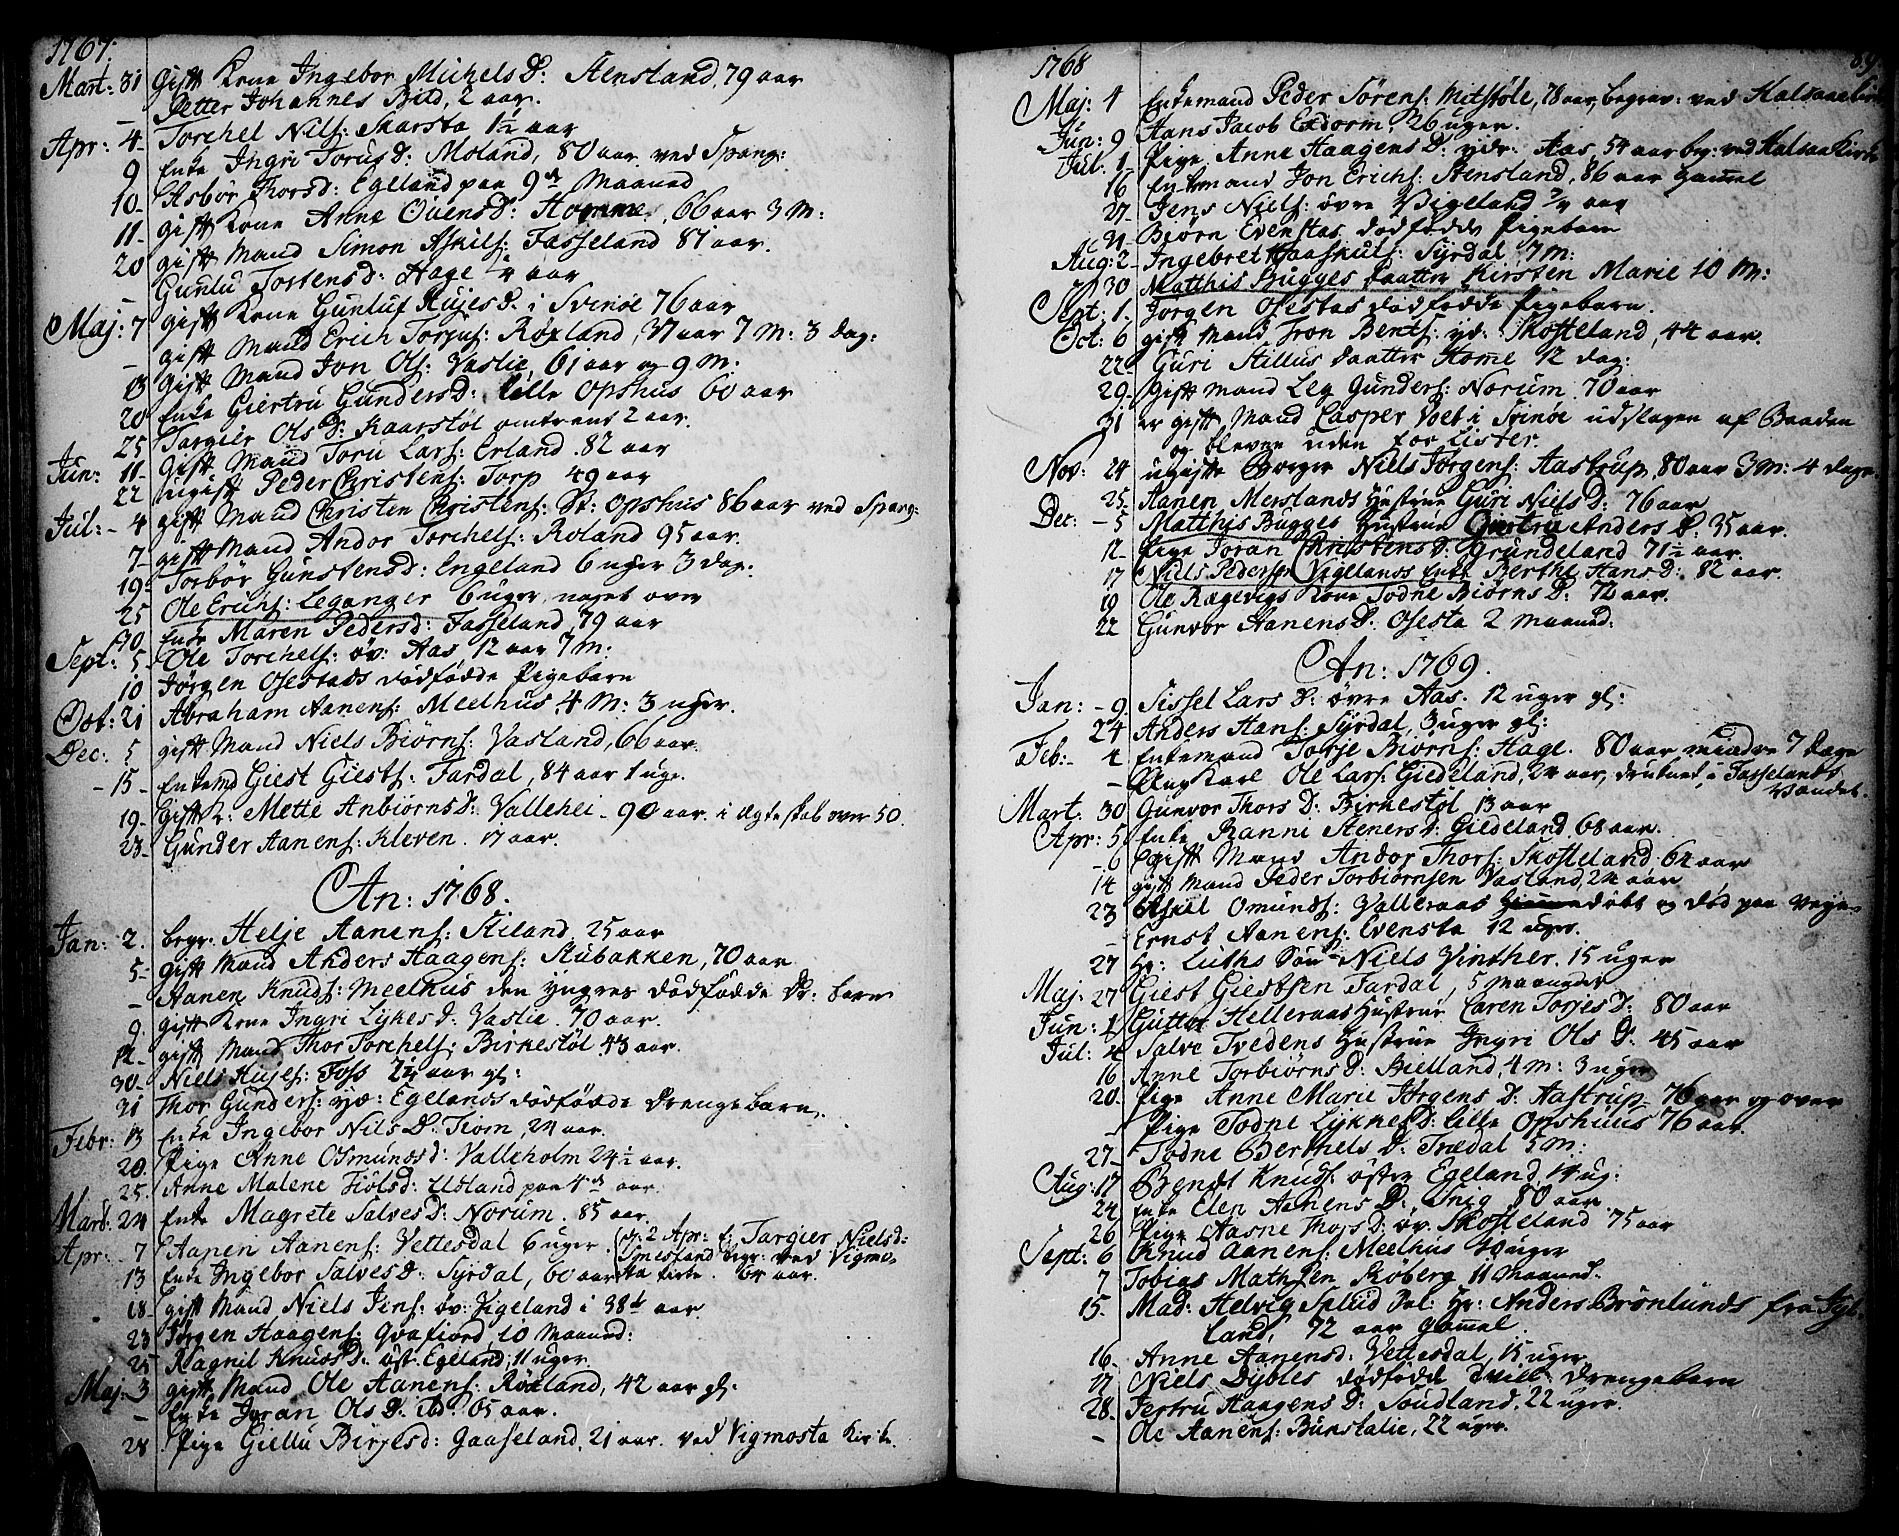 1767:
Mart: 31 gift Kone Ingebor Michels D: Stensland, 79 aar
– Petter Johannes Bild, 2 aar.
Apr: 4– Torchel Nils: Skarsta, 1½ aar
9 Enke Ingri Torus D: Moland, 80 aar ved Spang:
10– Asbør Thorsd: Egeland paa 9de Maaned
11– gift Kone Anne Ouens D: Homme, 66 aar 3 M:
20 gift Mand Simon Askils: Fasseland 81 aar.
– Gunlu Tostensd: Hage ¼ aar
Maj: 7 gift Kone Gunluf Rujes D: i Svinøe 76 aar
– gift Mand Erich Torjus: Røxland, 37 aar 7 M: 3 dag:
13 gift Mand Jon Ols: Vaslie, 61 aar og 9 M:
20 Enke Giertru Gunders D: Lille Opshus 60 aar
25 Targier Ols D: Kaarstøl omtrent 2 aar.
Jun: 11– gift Mand Toru Lars: Erland 82 aar
22 ugift Peder Christens: Torp 49 aar
Jul: – 4 gift Mand Christen Christens: St: Opshus 86 aar ved Spang:
7– gift Mand Andor Torchels: Roland 95 aar.
19– Torbør Gunstensd: Engeland 6 uger 3 dag:
25 Ole Erichs: Leganger 6 uger, noget over
30 Enke Maren Pedersd: Fasseland, 79 aar
Sept: 5 Ole Torchels: øv: Aas 12 aar 7 M:
10 Jørgen Osestads dødfødde Pigebarn
Oct: 21 Abraham Aanens: Meelhus, 4 M: 3 uger.
Dec: 5 gift Mand Niels Biørns: Vasland, 66 aar.
– 15– Enkemd Giest Giests: Fardal, 84 aar 1 uge.
19– Gift K: Mette Anbiørns D: Vallehei – 90 aar. i Ægteskab over 50.
23– Gunder Aanens: Kleven. 17 aar.
An: 1768.
Jan: 2. begr: Helje Aanens: Stiland 25 aar
5– gift Mand Anders Haagens: Stubakken, 70 aar
– Aanen Knuds: Meelhus den yngres dødfødde Dr: barn
9. gift Kone Ingri Lykes D: Vaslie. 70 aar.
12– gift Mand Thor Torchels: Birkestøl 43 aar.
30– Niels Hujes: Foss 2¼ aar gl:
31 Thor Gunders: yt: Egelands dødfødde Drengebarn.
Febr: 13 Enke Ingebor Nils D: Tiom, 24 aar.
20. Pige Anne Osmunds D: Valleholm 24½ aar.
25. Anne Malene Fiølsd: Udland paa 4de aar.
Mart: 24 Enke Magrete Salves D: Norum. 85 aar.
Apr: 7 Aanen Aanens: Vettesdal 6 uger. (d: 2 Apr: E: Targier Nielsd:
Smesland begr: ved Vigmo-
13 Enke Ingebor Salves D: Syrdal, 60 aar sta Kirke. 64 aar.
18– gift Mand Niels Jens: øv: Vigeland i 38de aar
23 Jørgen Haagens: Qvafiord, 10 Maaned:
25 Ragnil Knuds D: øst: Egeland, 11 uger.
Maj: 3 gift Mand Ole Aanens: Røxland, 42 aar gl:
– Enke Joran Ols D: ibd: 65 aar.
28 Pige Giellu Birjesd: Gaaseland, 21 aar. ved Vigmosta Kirke.
1768 89.
Maj: 4 Enkemand Peder Sørens: Mitstøle, 78 aar, begrav: ved Halsaae Kirke
Jun: 9 Hans Jacob Exdorm, 26 uger.
Jul: 1– Pige Anne Haagens D: ydr: Aas, 54 aar, beg: ved Halsaa Kirke
16 Enkemand Jon Erichs: Stensland, 86 aar gammel
27– Jens Niels: øvre Vigeland ¾ aar
31– Biørn Evenstas dødfødde Pigebarn
Aug: 2– Ingebret Haaskuls: Syrdal 7 M:
30 Matthis Bugges daatter Kirsten Marie 10 M:
Sept: 1. Jørgen Osestas dødfødde Pigebarn.
Oct: 6 gift Mand Tron Bents: yd: Skofteland, 44 aar.
22– Guri Stillus daatter Home 12 dag:
29– Gift Mand Leg Gunders: Norum 70 aar
31 er gift Mand Casper Volt i Svinøe udslagen af Baaden
og bleven uden for Lister.
Nov: 24 ugifte Borger Niels Jørgens: Aastrup, 80 aar 3 M: 4 dage.
25– Aanen Merslands Hustrue Guri Niels D: 76 aar
Dec: – 5 Matthis Bugges Hustrue Giertru Anders D: 35 aar.
12– Pige Joran Christens D: Grundeland 71½ aar.
17 Niels Pedersen Vigelands Enke Berthe Hans D: 82 aar.
19 Ole Rægevigs Kone Todne Biørns D: 72 aar.
22 Gunvor Aanens D: Osesta 2 Maaned:
An: 1769.
Jan: – 9. Sissel Lars D: øvre Aas. 12 uger gl:
24 Anders Hans: Syrdal, 3 uger gl:
Feb: – 4 Enkemand Torje Biørns: Hage. 80 aar mindre 7 dage
– Ung Karl Ole Lars: Giedeland, 24 aar, druknet i Fasselands
Vandet.
Mart. 30 Gunvor Thors D: Birkestøl 13 aar
Apr: 5. Enke Ranne Steners D: Giedeland 68 aar.
– 6 gift Mand Andor Thors: Skofteland 62 aar
14 gift Mand Peder Torbiørnsen Vasland, 24 aar
23 Askil Omunds: Valleraas døbt og død paa Veje
– Ernst Aanens: Evensta 12 uger.
27 Hr: Luths Søn Niels Vinther. 15 uger
Maj: 27 Giest Giestsen Fardal, 5 maaneder
Jun: 1 Guttor Helleraas Hustrue Caren Torjes D: 80 aar
Jul: 4 Salve Tvedens Hustrue Ingri Ols D: 45 aar
16 Anne Torbiørns D: Bielland, 4 M: 3 uger
20– Pige Anne Marie Jørgens D: Aastrup 76 aar og over
– Pige Todne Lykke D: Lille Opshuus 76 aar.
27– Todne Berthels D: Trædal 5 M:
Aug: 17 Bendt Knuds: østre Egeland, 14 ug:
24 Enke Elen Aanens D: Snig 80 aar.
26 Pige Aasne Thors D: øv: Skofteland 75 aar
Sept: 6 Knud Aanens: Meelhus 40 uger
7 Tobias Mathsen Skøberg 11 maaned.
15. Mad: Helvig Salud Sal: Hr: Anders Brønlunds fra Jyl-
land, 72 aar gammel
16– Anne Aanensd: Vettesdal, 15 uger
17 Niels Dybles dødfødde Drengebarn
28. Jertru Haagens D: Soudland, 22 uger.
– Ole Aanens: Bunstalie, 22 uger.